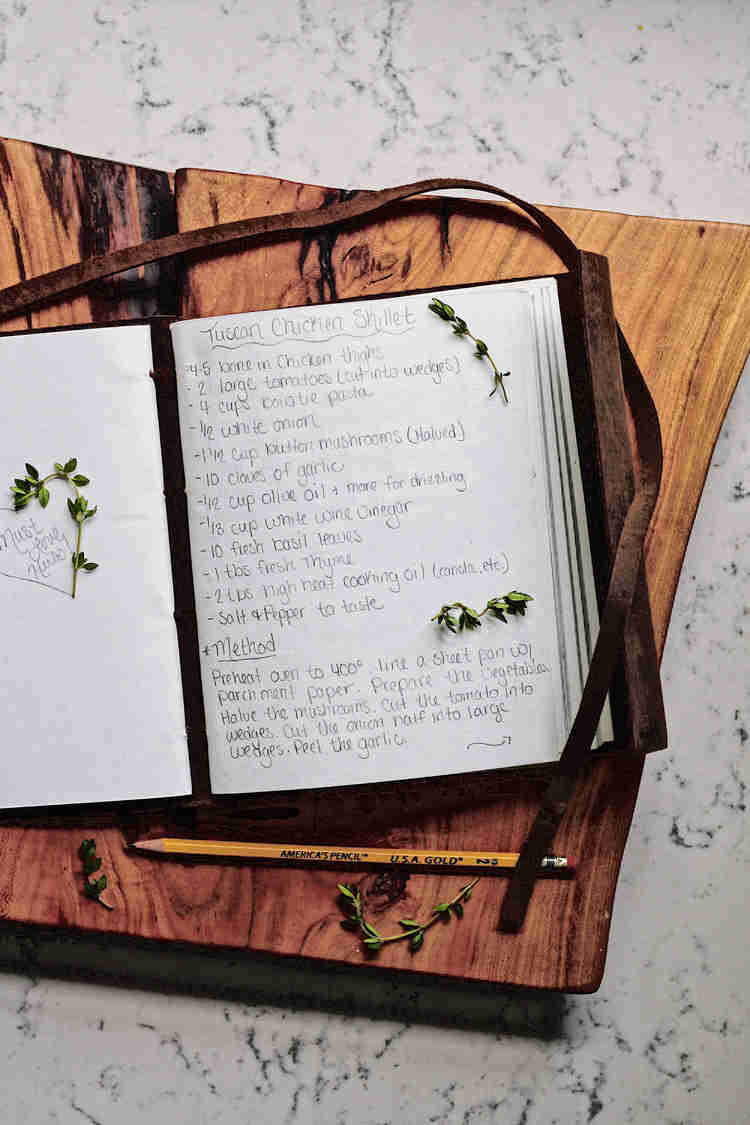 Must
Love
Tuscan Chicken Skillet
·4-5 bone in Chicken thighs
· 2 large tomatoes (cut into wedges)
- 4 cups pasta
- 1/2 white onion
- 1 1/2 cup button mushrooms (Halved)
- 10 cloves of garlic
- 1/2 cup olive oil + more for drizzling
- 1/3 cup white wine vinegar
- 10 fresh basil leaves
- 1 tbs fresh Thyme
- 2 tbs high heat cooking oil (canola, etc.)
- Salt & Pepper to taste
*Method
Preheat oven to 400°. Line a sheet pan w/
parchment paper. Prepare the vegetables.
Halve the mushrooms. Cut the tomato into
wedges. Cut the onion half into large
wedges. Peel the garlic.
AMERICA'S PENCIL™ U.S.A. GOLD® 2